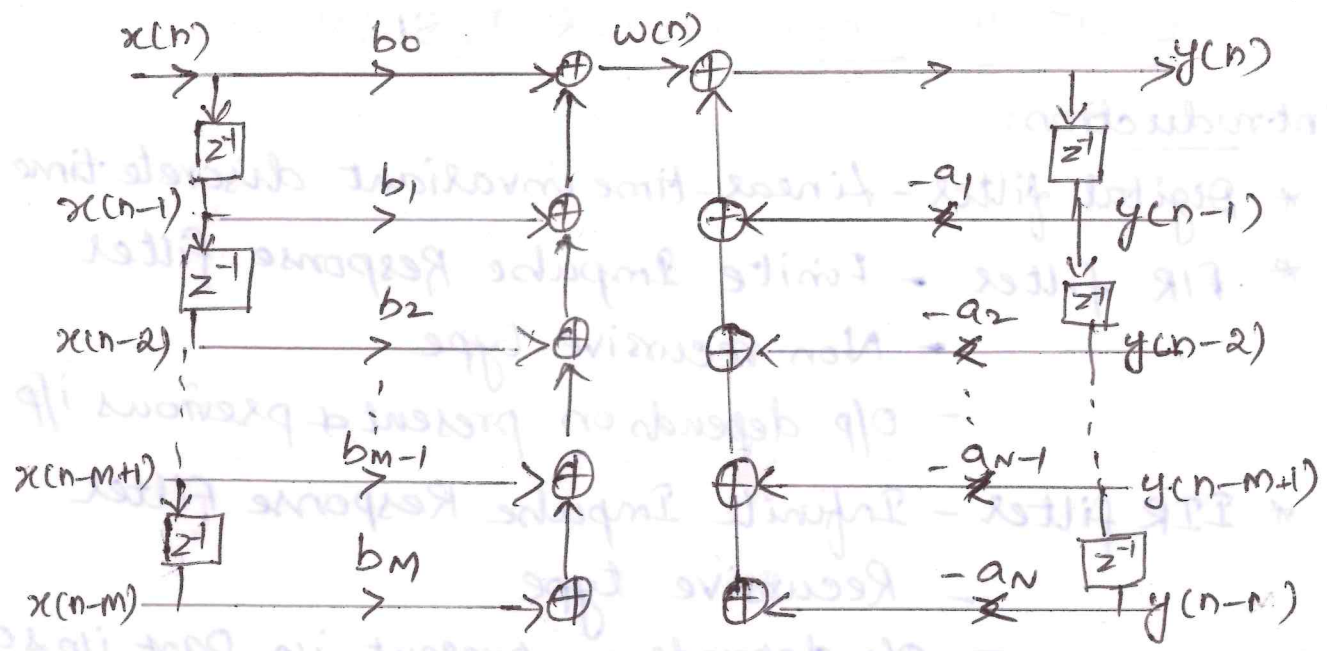 x(n) b0 w(n) y(n)
z⁻¹ z⁻¹
x(n-1) b1 -a1 y(n-1)
z⁻¹ z⁻¹
x(n-2) b2 -a2 y(n-2)
x(n-M+1) bM-1 -aN-1 y(n-M+1)
z⁻¹ z⁻¹
x(n-M) bM -aN y(n-M)